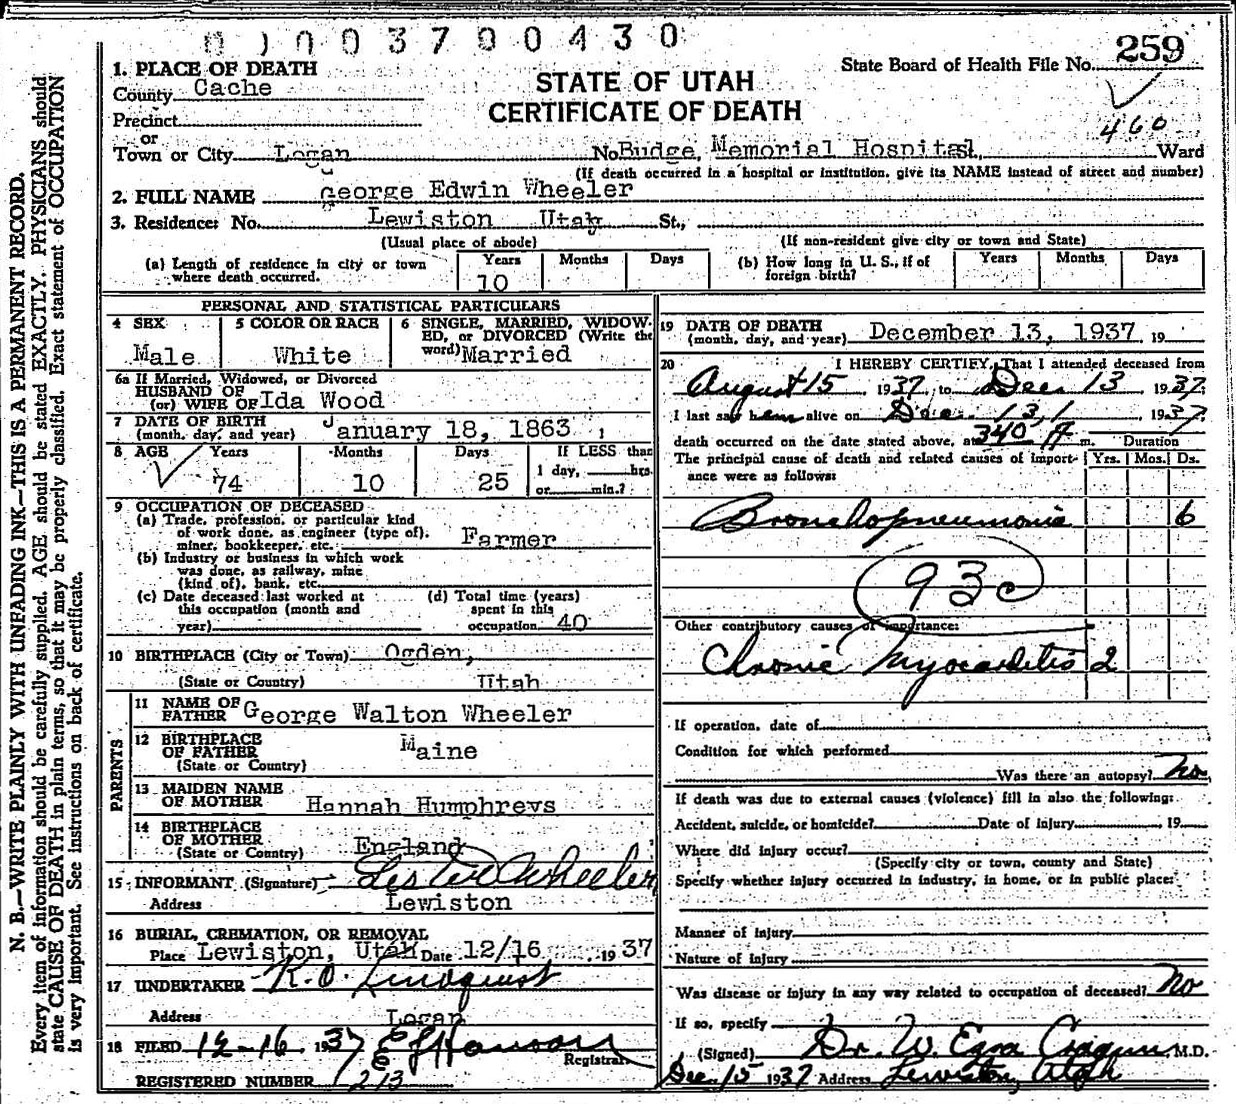 0 1 0 0 3 7 0 0 4 3 0
259
State Board of Health File No.
460
STATE OF UTAH
CERTIFICATE OF DEATH
1. PLACE OF DEATH
County Cache
Precinct
or
Town or City Logan No. Budge Memorial Hospital St., Ward
(If death occurred in a hospital or institution, give its NAME instead of street and number)
2. FULL NAME George Edwin Wheeler
3. Residence: No. Lewiston Utah St.,
(Usual place of abode) (If non-resident give city or town and State)
(a) Length of residence in city or town where death occurred. Years 10 Months Days
(b) How long in U. S., if of foreign birth? Years Months Days
PERSONAL AND STATISTICAL PARTICULARS
4 SEX Male
5 COLOR OR RACE White
6 SINGLE, MARRIED, WIDOWED, or DIVORCED (Write the word) Married
6a If Married, Widowed, or Divorced
HUSBAND OF
(or) WIFE OF Ida Wood
7 DATE OF BIRTH
(month, day, and year) January 18, 1863
8 AGE Years 74 Months 10 Days 25 If LESS than
1 day, hrs.
or min.?
9 OCCUPATION OF DECEASED
(a) Trade, profession, or particular kind
of work done, as engineer (type of),
miner, bookkeeper, etc. Farmer
(b) Industry or business in which work
was done, as railway, mine
(kind of), bank, etc.
(c) Date deceased last worked at
this occupation (month and
year)
(d) Total time (years)
spent in this
occupation 40
10 BIRTHPLACE (City or Town) Ogden,
(State or Country) Utah
PARENTS
11 NAME OF
FATHER George Walton Wheeler
12 BIRTHPLACE
OF FATHER Maine
(State or Country)
13 MAIDEN NAME
OF MOTHER Hannah Humphreys
14 BIRTHPLACE
OF MOTHER
(State or Country) England
15 INFORMANT (Signature) Wheeler
Address Lewiston
16 BURIAL, CREMATION, OR REMOVAL
Place Lewiston, Utah Date 12/16 1937
17 UNDERTAKER K. O. Lindquist
Address Logan
18 FILED 12-16 1937
Registrar
REGISTERED NUMBER 213
19 DATE OF DEATH
(month, day, and year) December 13, 1937 19
20 I HEREBY CERTIFY, That I attended deceased from
August 15 1937 to Dec 13 1937
I last saw him alive on Dec. 13, 1937
death occurred on the date stated above, at 340 A m. Duration
The principal cause of death and related causes of importance were as follows: Yrs. Mos. Ds.
Bronchopneumonia 6
93c
Other contributory causes of importance:
Chronic Myocarditis 2
If operation, date of
Condition for which performed
Was there an autopsy? No
If death was due to external causes (violence) fill in also the following:
Accident, suicide, or homicide? Date of injury 19
Where did injury occur?
(Specify city or town, county and State)
Specify whether injury occurred in industry, in home, or in public place:
Manner of Injury
Nature of Injury
Was disease or injury in any way related to occupation of deceased? No
If so, specify
(Signed) Dr. W. Ezra Cragun M.D.
Dec 15 1937 Address Lewiston, Utah
N. B.—WRITE PLAINLY WITH UNFADING INK—THIS IS A PERMANENT RECORD.
Every item of information should be carefully supplied. AGE should be stated EXACTLY. PHYSICIANS should
state CAUSE OF DEATH in plain terms, so that it may be properly classified. Exact statement of OCCUPATION
is very important. See instructions on back of certificate.